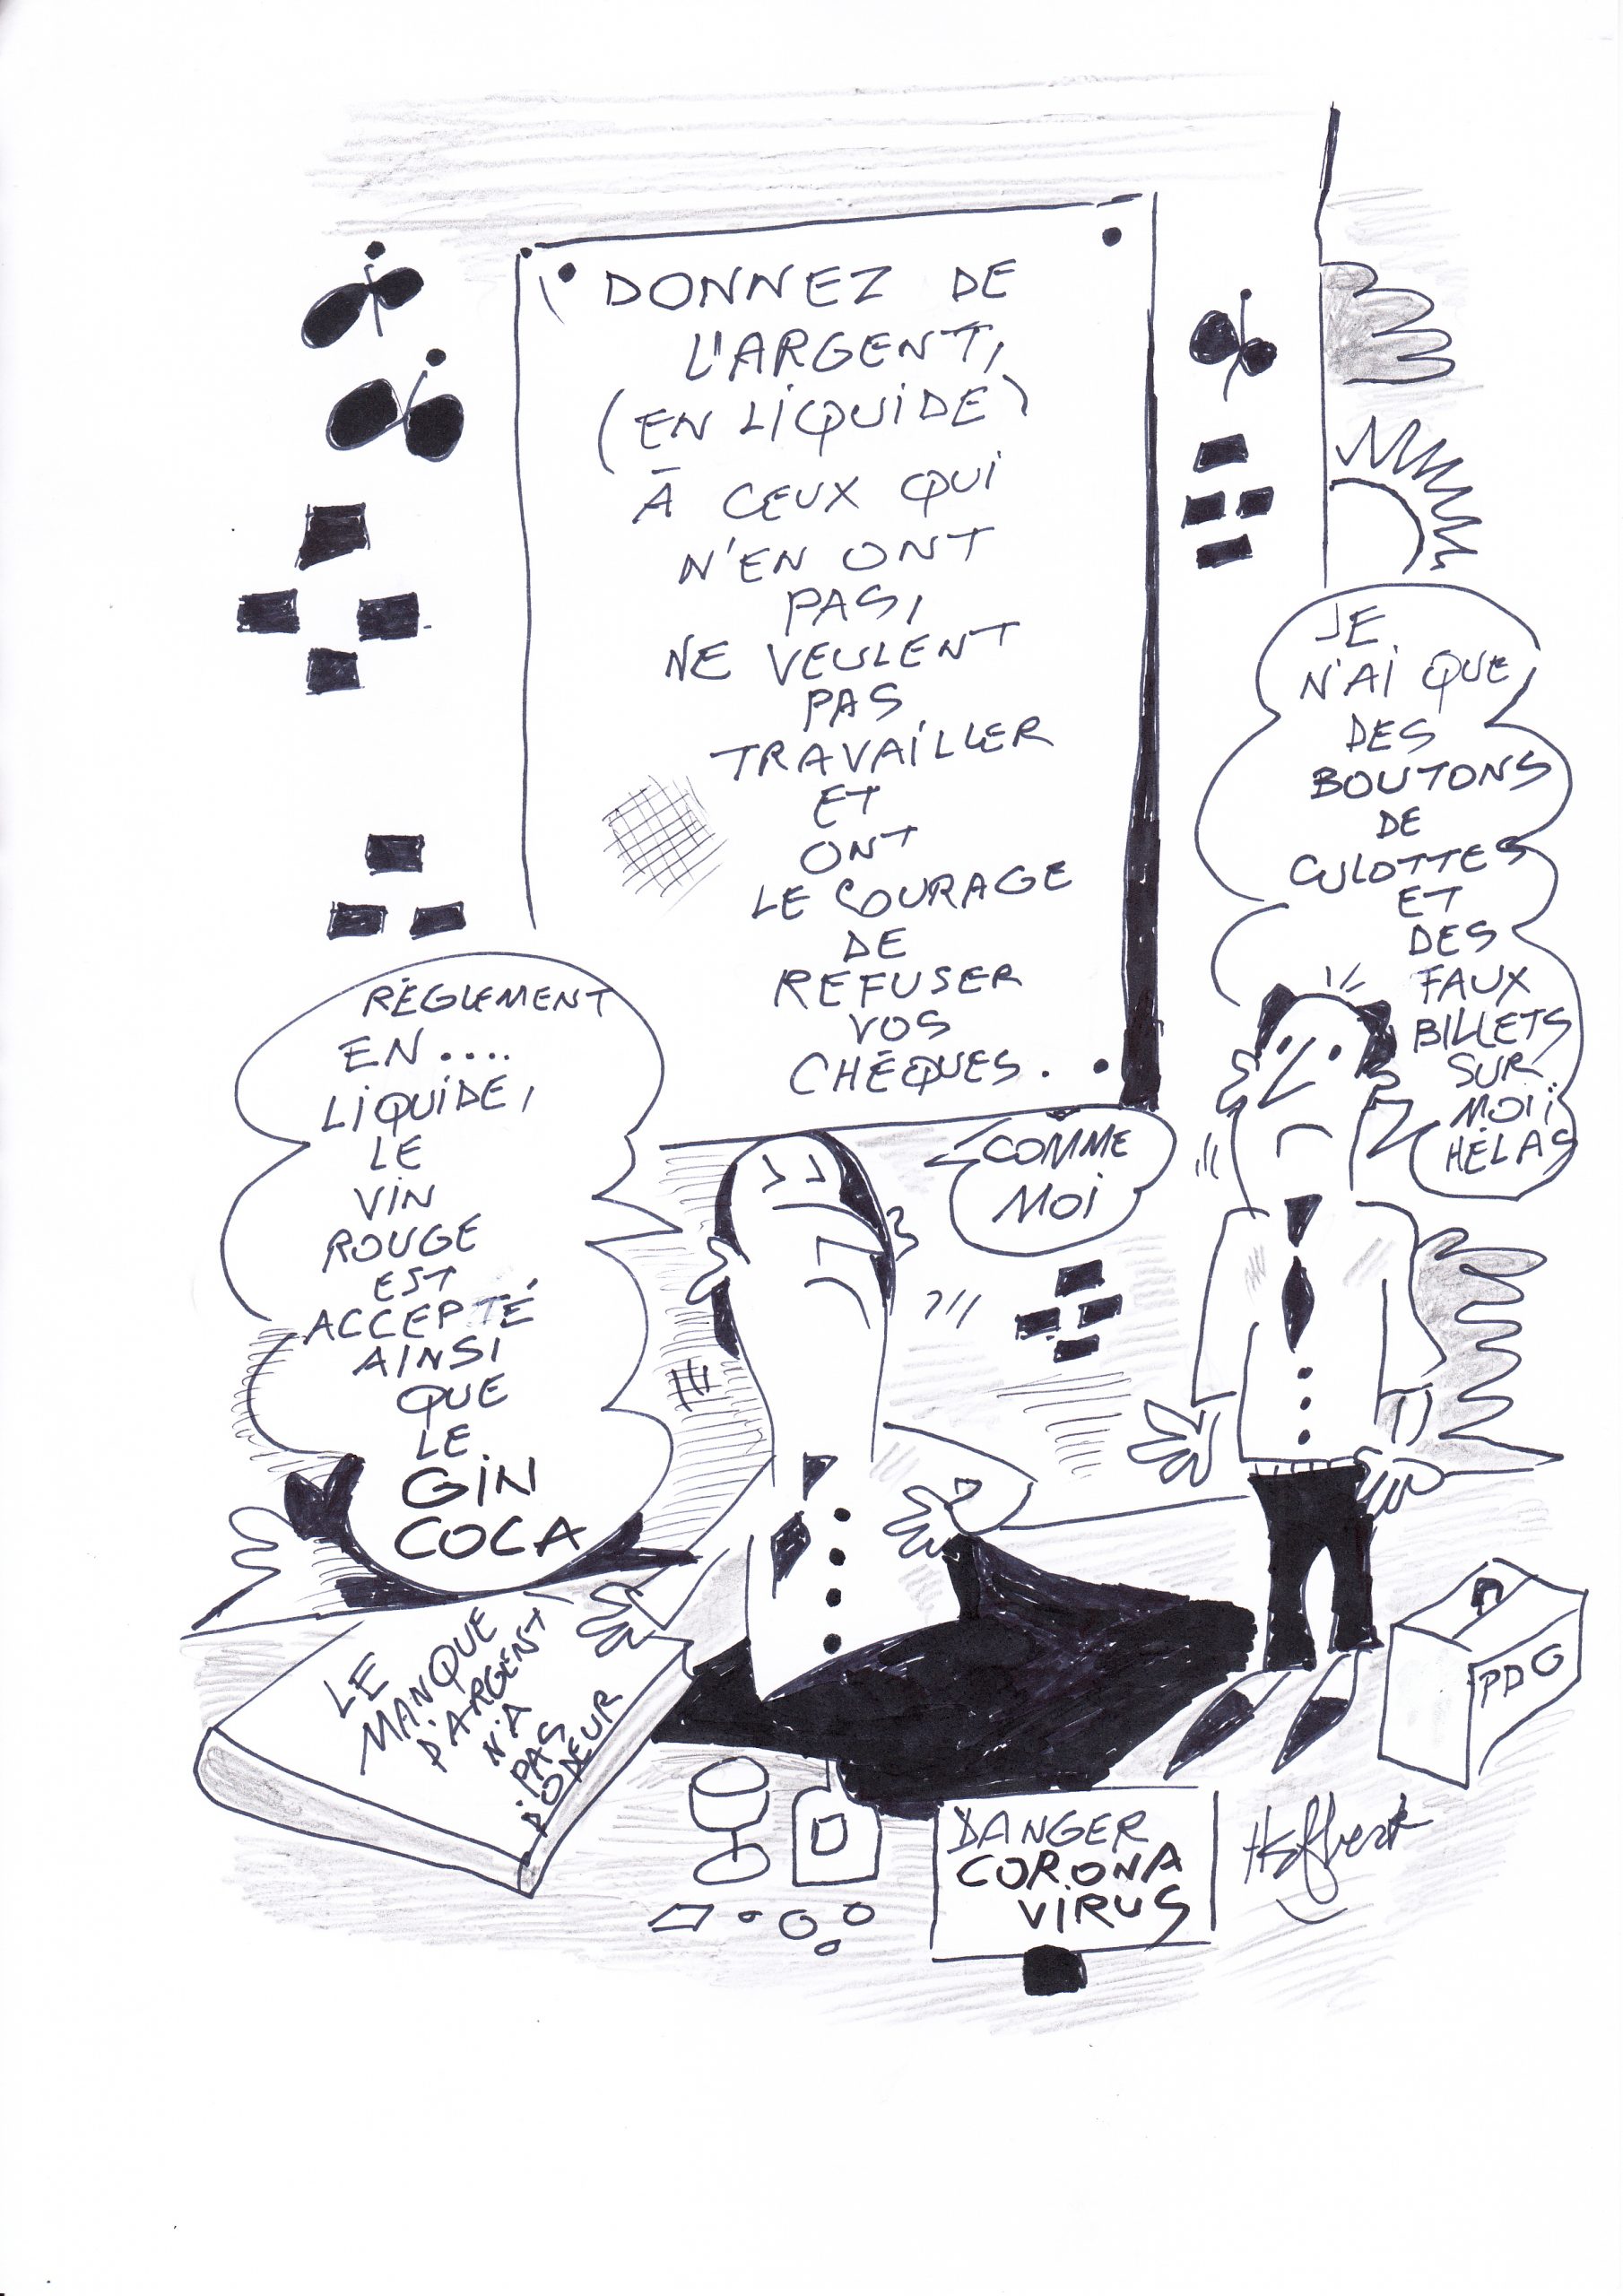 DONNEZ DE
L'ARGENT,
(EN LIQUIDE)
À CEUX QUI
N'EN ONT
PAS,
NE VEULENT
PAS
TRAVAILLER
ET
ONT
LE COURAGE
DE
REFUSER
VOS
CHÉQUES.
JE
N'AI QUE
DES
BOUTONS
DE
CULOTTES
ET
DES
FAUX
BILLETS
SUR
MOI ;
HÉLAS
RÉGLEMENT
EN....
LIQUIDE,
LE
VIN
ROUGE
EST
ACCEPTÉ
AINSI
QUE
LE
GIN
COCA
COMME
MOI
LE
MANQUE
D'ARGENT
N'A
PAS
D'ODEUR
PDG
DANGER
CORONA
VIRUS